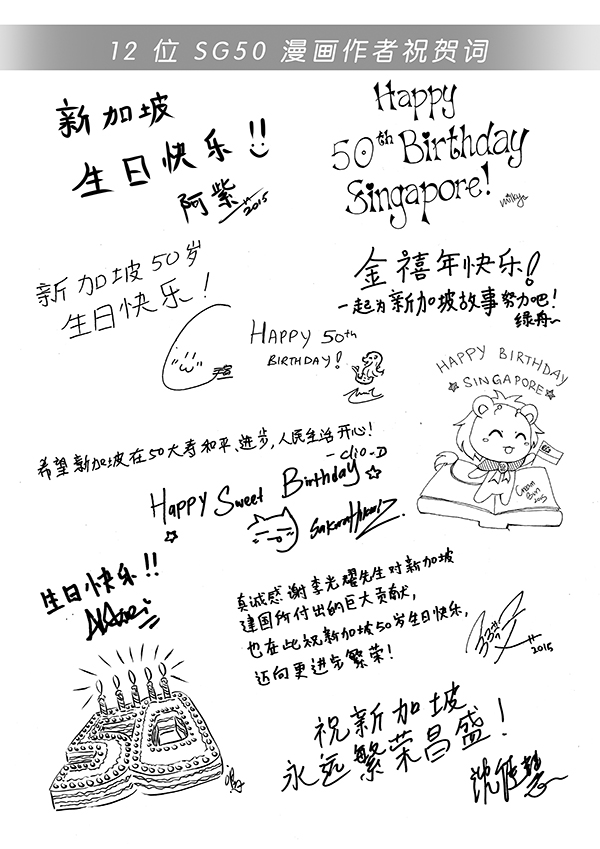 12 位 SG50 漫画作者祝贺词
新加坡
生日快乐!!
阿紫
2015
Happy
50th Birthday
Singapore!
milkyu
新加坡50岁
生日快乐!
金禧年快乐!
一起为新加坡故事努力吧!
绿舟
HAPPY 50th
BIRTHDAY!
HAPPY BIRTHDAY
SINGAPORE
Cream
Bun
2015
希望新加坡在50大寿和平、进步,人民生活开心!
- Clio-D
Happy Sweet Birthday
生日快乐!!
真诚感谢李光耀先生对新加坡
建国所付出的巨大贡献,
也在此祝新加坡50岁生日快乐,
迈向更进步繁荣!
2015
50
祝新加坡
永远繁荣昌盛!